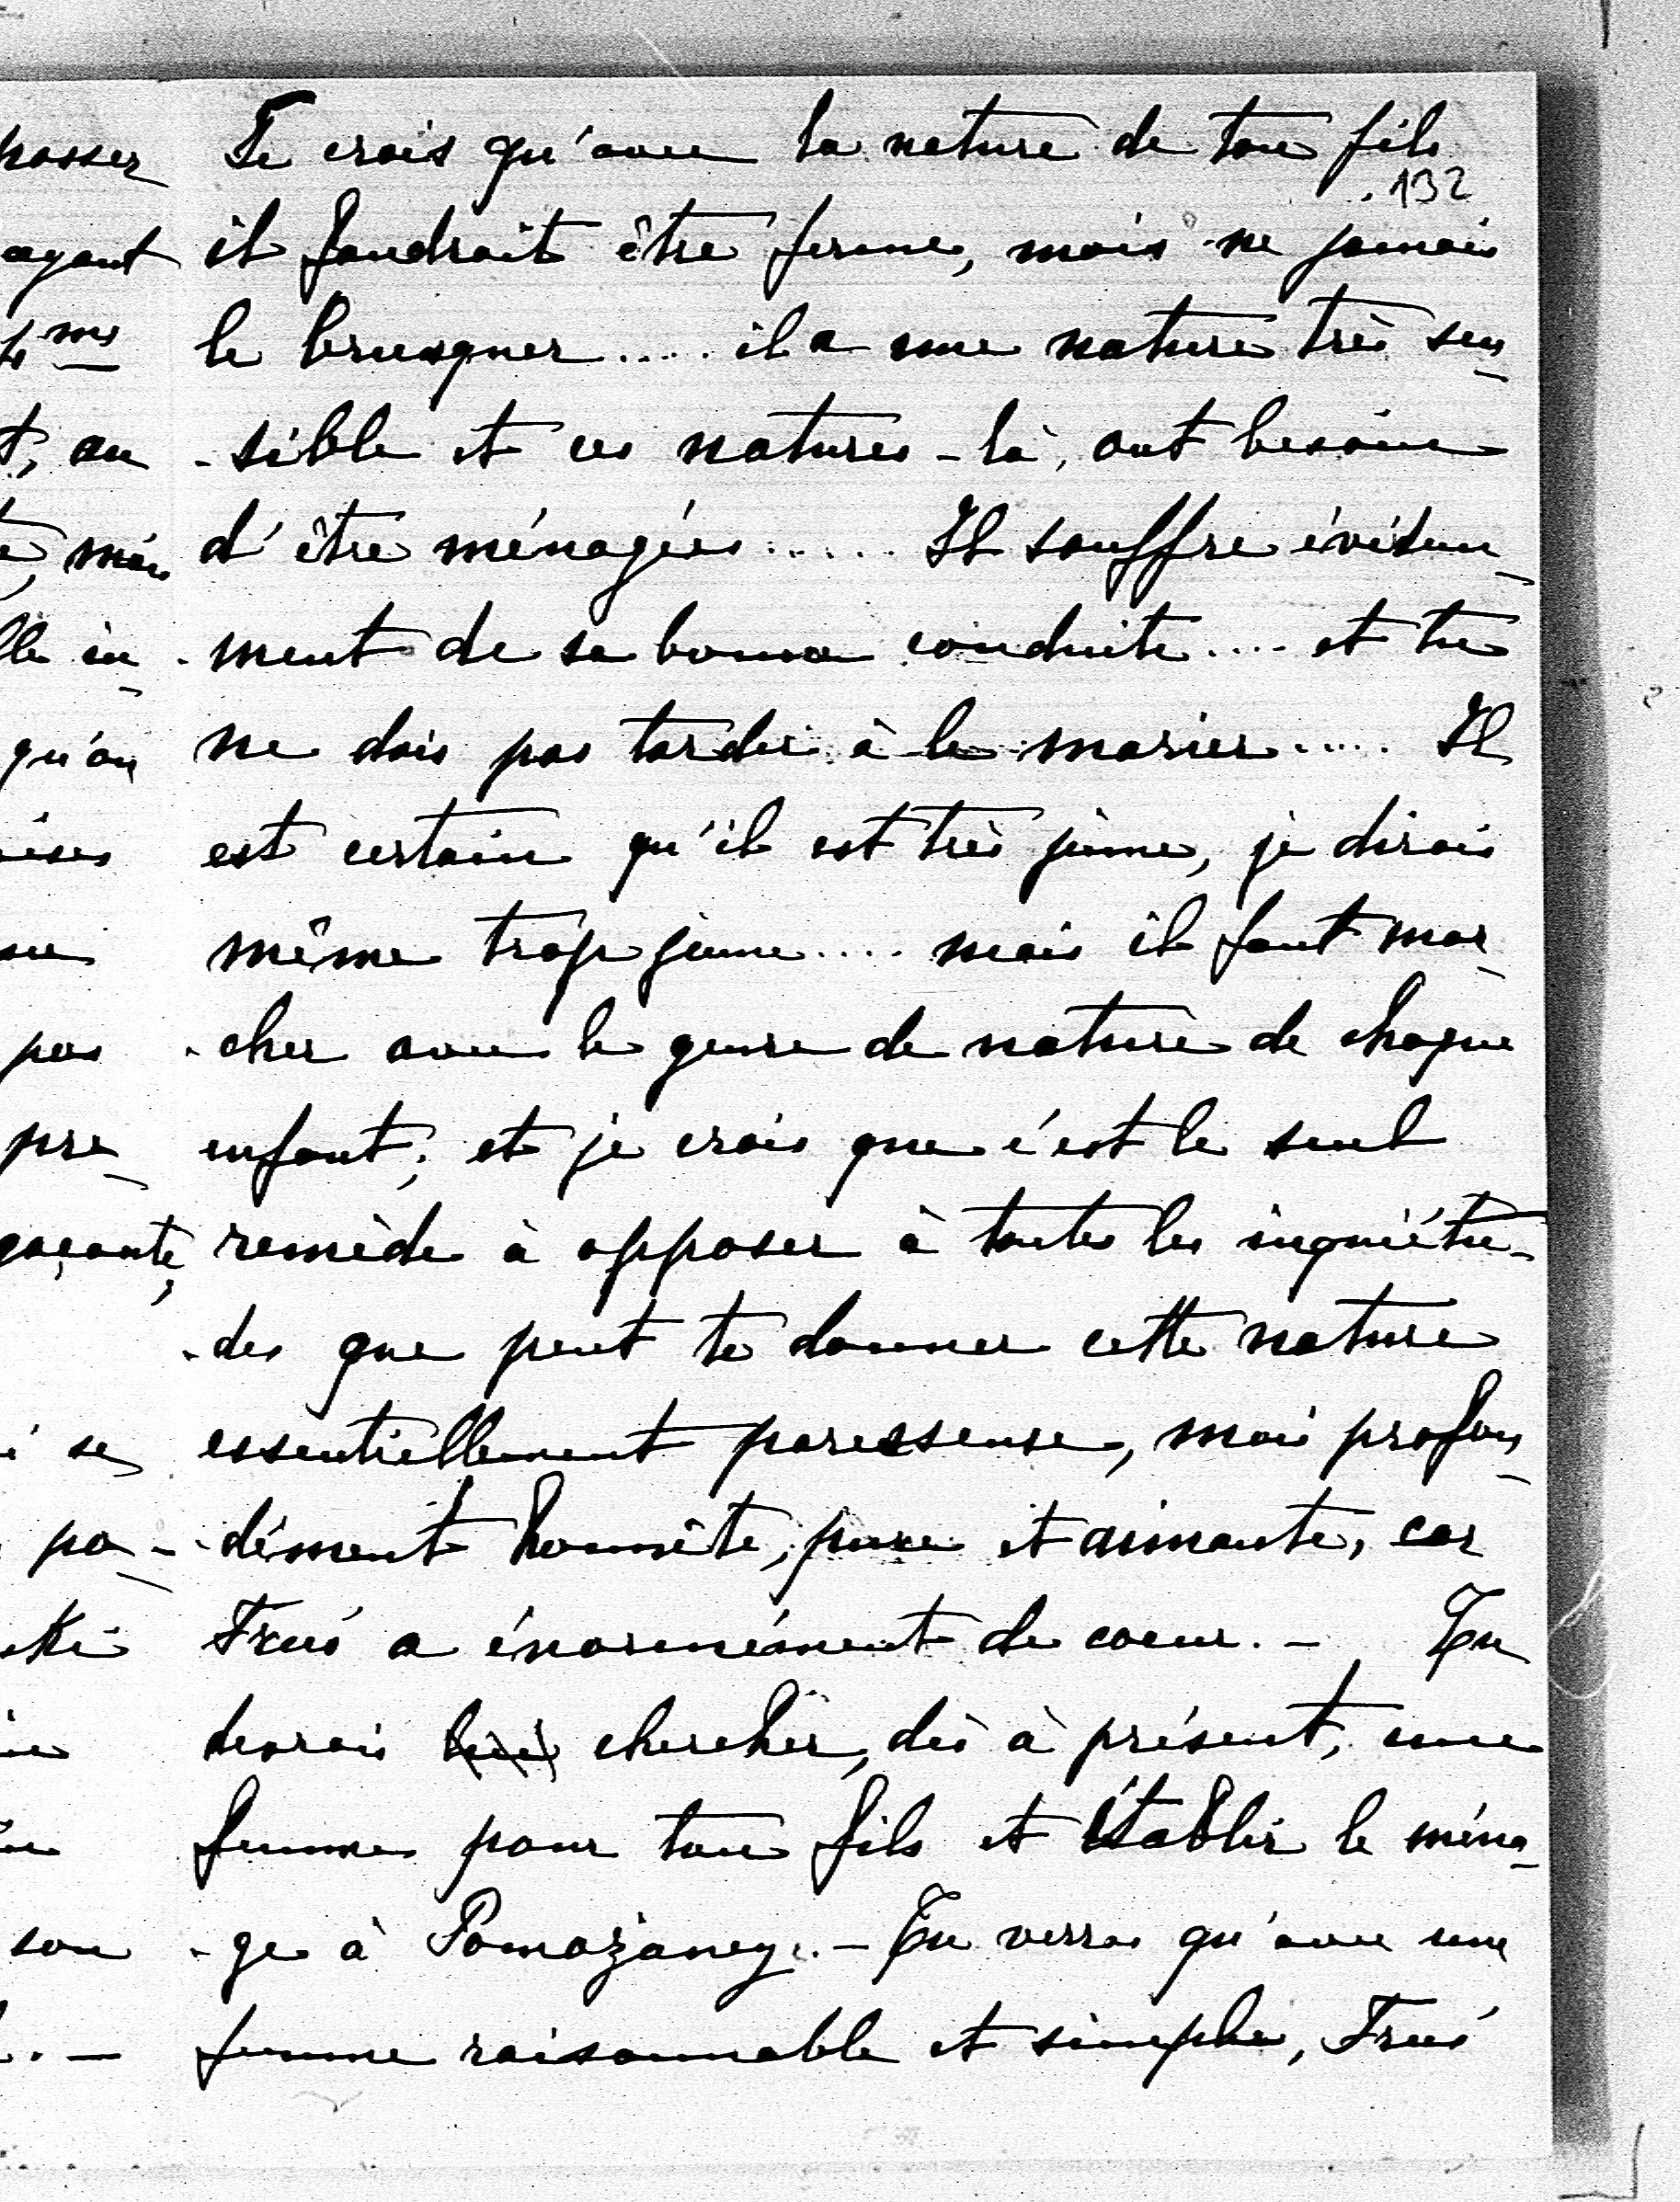 Je crois qu'avec la nature de ton fils
132
il faudrait être ferme, mais ne jamais
le brusquer..... il a une nature très sen-
-sible et ces natures-là, ont besoin
d'être ménagées..... Il souffre évidem-
-ment de sa bonne conduite.... et tu
ne dois pas tarder à le marier..... Il
est certain qu'il est très jeune, je dirais
même trop jeune.... mais il faut mar-
-cher avec le genre de nature de chaque
enfant; et je crois que c'est le seul
remède à opposer à toutes les inquiétu-
-des que peut te donner cette nature
essentiellement paresseuse, mais profon-
-dément honnête, pure et aimante, car
a énormément de coeur. - Tu
devrais chercher, dès à présent, une
femme pour ton fils et établir le ména-
-ge à Pomorzany. - Tu verras qu'avec une
femme raisonnable et simple,